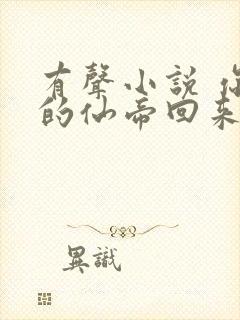 有聲小說 你
的仙帝回來
異識